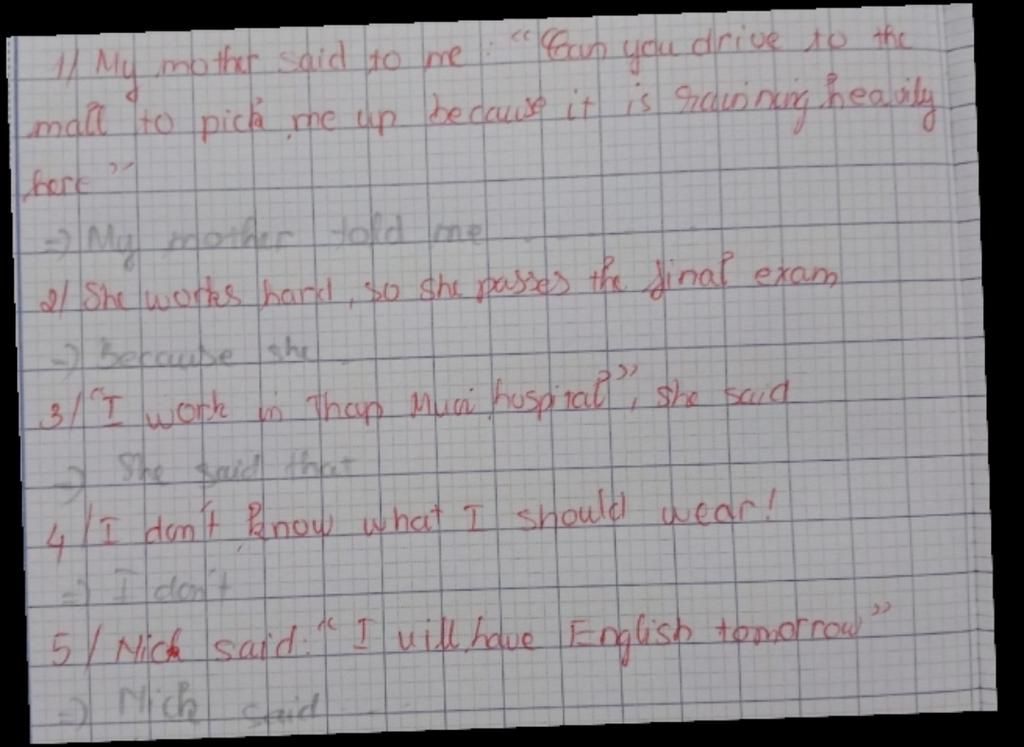 1) My mother said to me : "Can you drive to the
mall to pick me up because it is raining heavily
here"
=> My mother told me
2) She works hard, so she passes the final exam
=> Because she
3/ "I work in Thap Muoi hospital", she said
=> She said that
4/ I don't know what I should wear!
=> I don't
5/ Nick said: "I will have English tomorrow"
=> Nick said